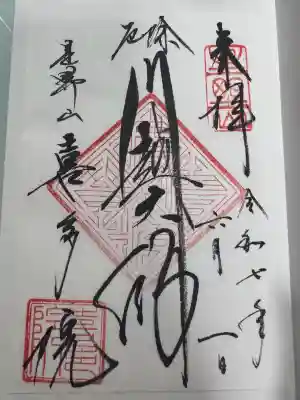 奉拝
令和七年
六月一日
厄除
川越大師
星野山
喜多院